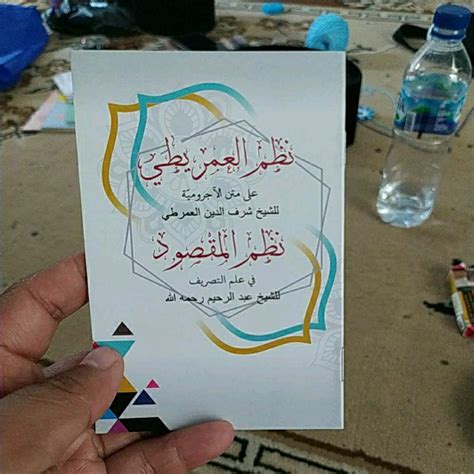 نظم العمريطي
على متن الآجرومية
للشيخ شرف الدين العمرطي
نظم المقصود
في علم التصريف
للشيخ عبد الرحيم رحمه الله